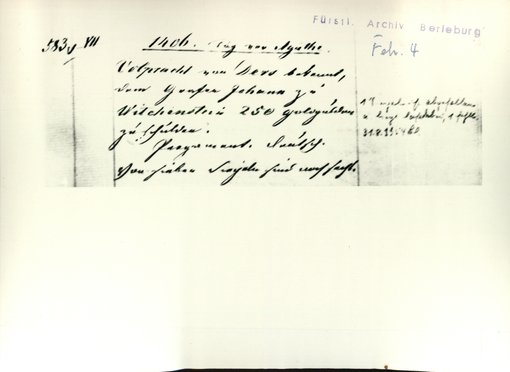 Fürstl. Archiv Berleburg
Feb. 4
583 VII
1406. Tag vor Agathe.
Volpracht von Ders bekennt,
dem Grafen Johann zu
Witchenstein 250 Goldgulden
zu schulden.
Pergament. Deutsch.
Von sieben Siegeln sind noch sechs.